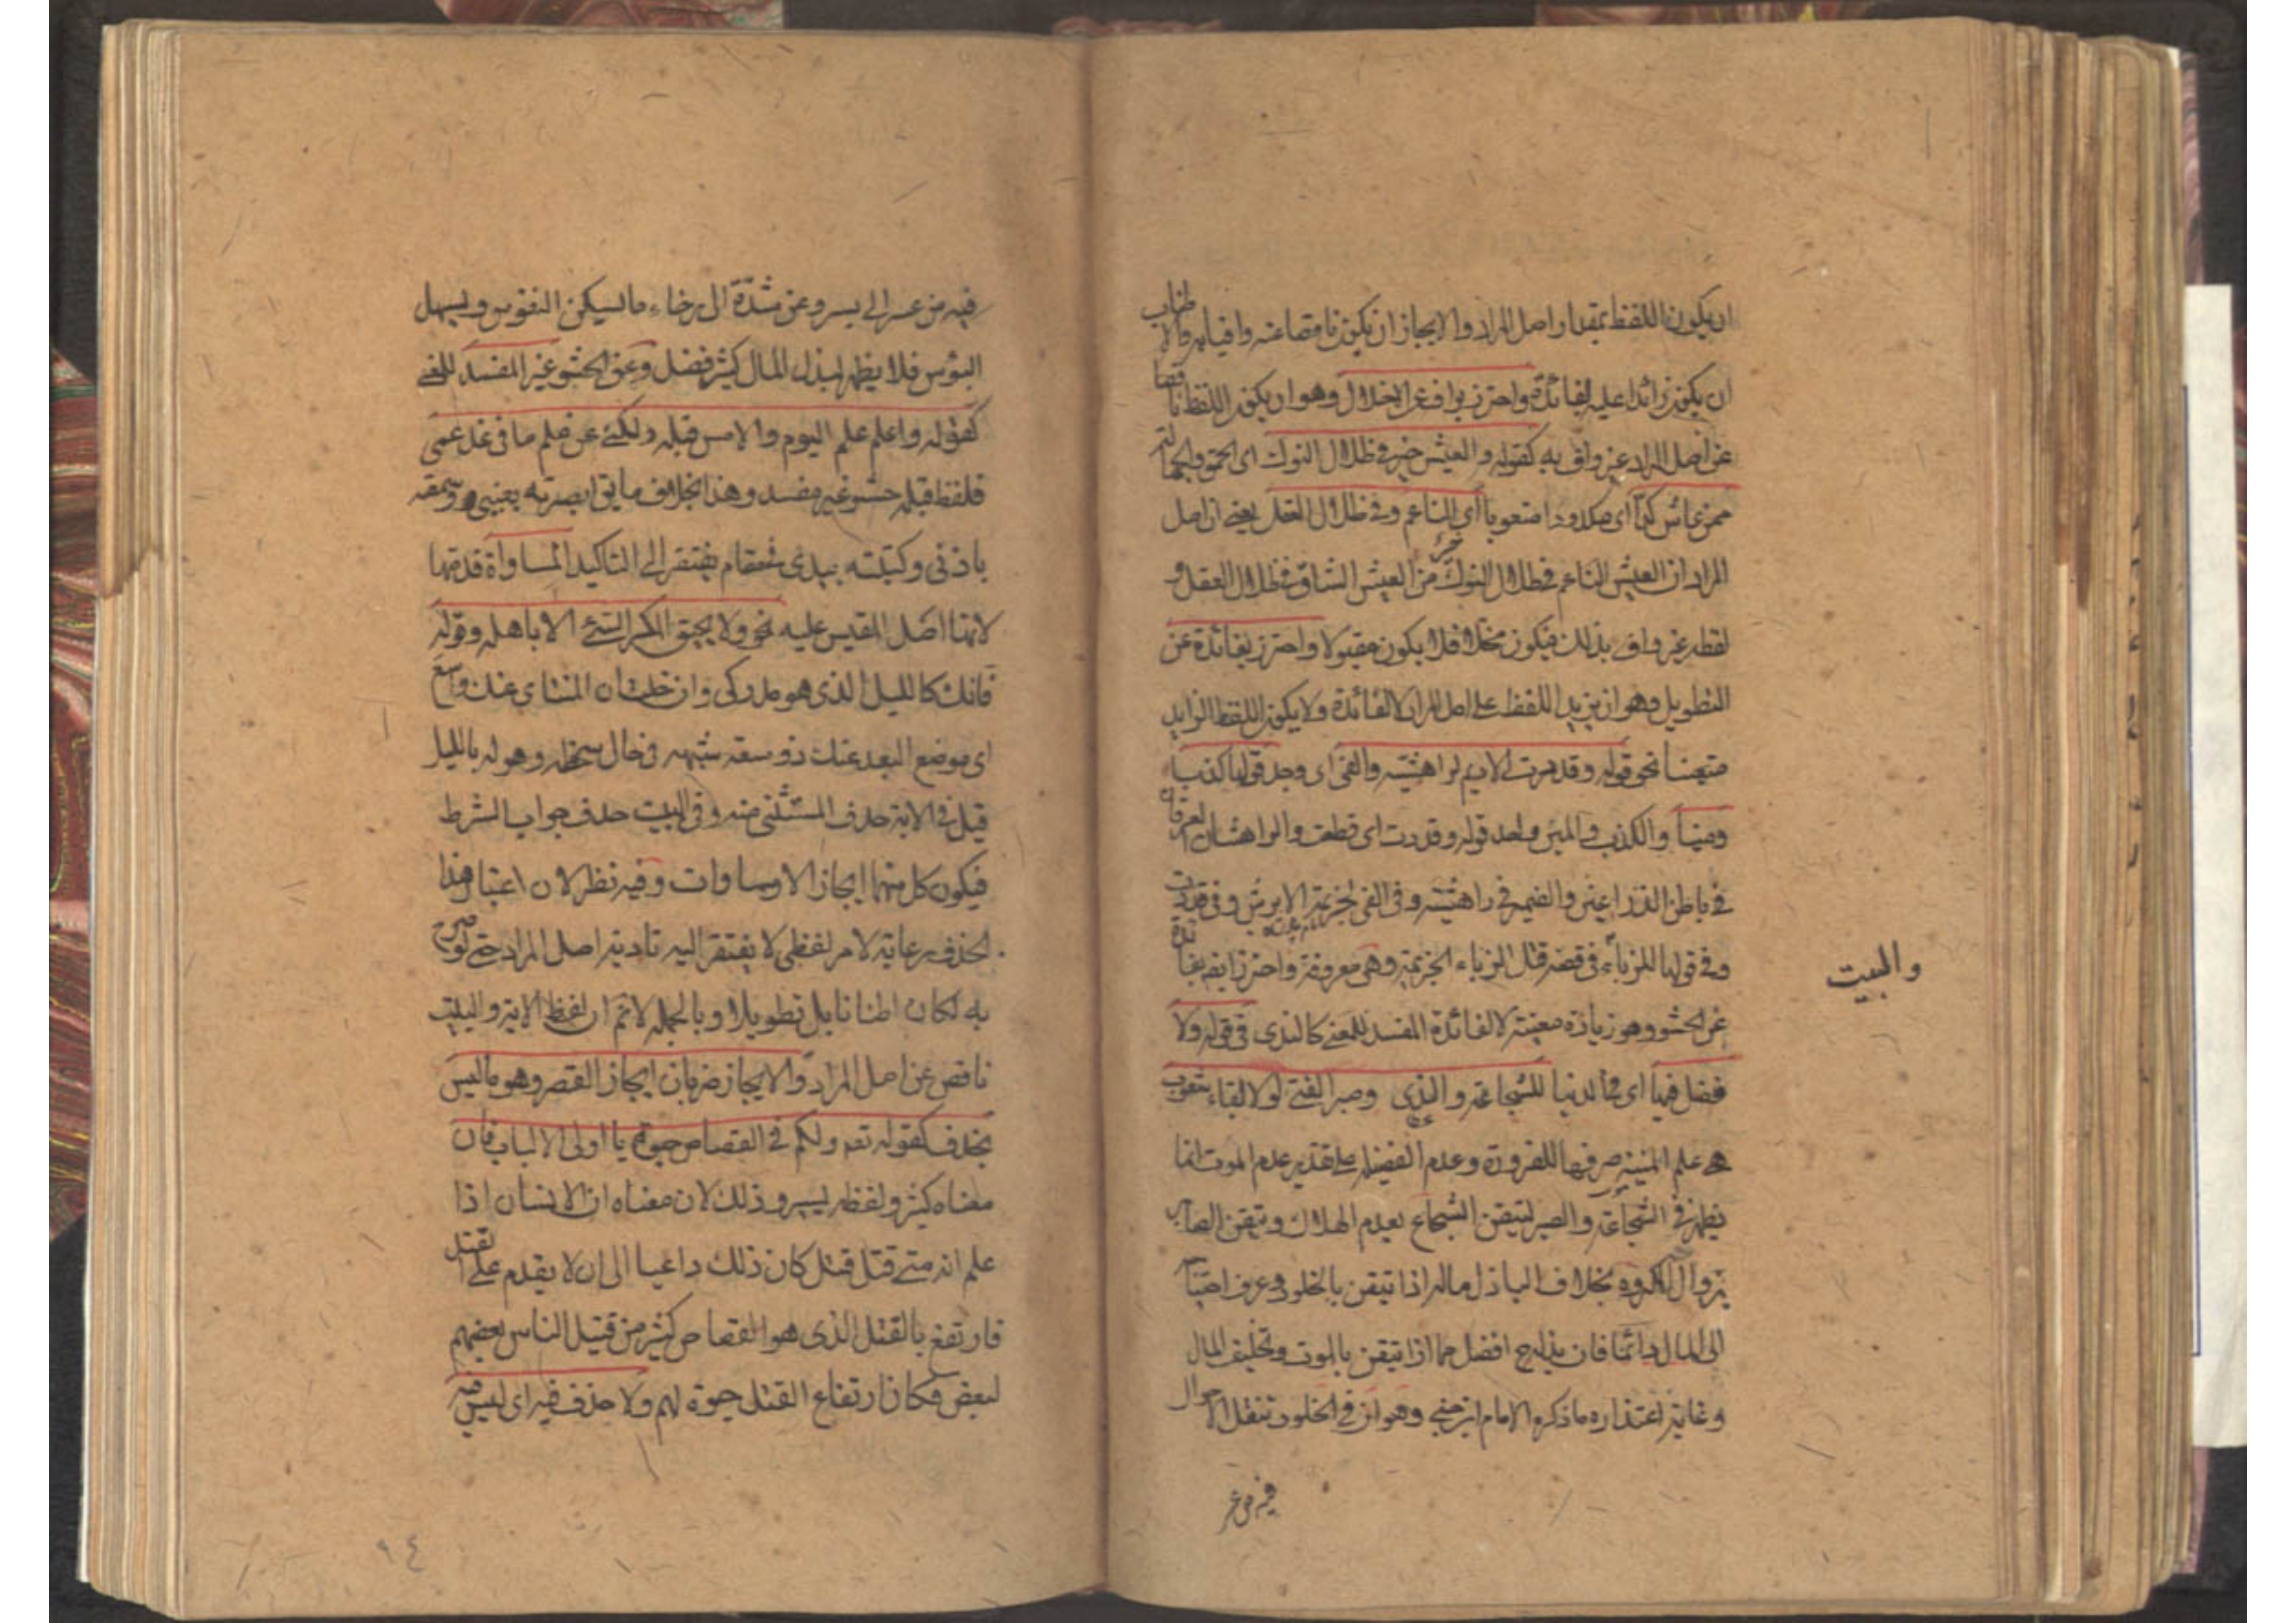 ان يكون اللفظ بمقدار اصل المراد والايجاز ان يكون ناقصا عنه وافيا به والاطناب
ان يكون زائدا عليه لفائدة واحترز بواف عن الاخلال وهو ان يكون اللفظ ناقصا
عن اصل المراد غير واف به كقوله والعيش خير في ظلال النوك اى الحمق والجهالة
ممن عاش كدا اى مكدودا متعوبا اى الناعم وفي ظلال العقل يعنى ان اصل
المراد ان العيش الناعم في ظلال النوك خير من العيش الشاق في ظلال العقل و
لفظه غير واف بذلك فيكون مخلا فلا يكون مقبولا واحترز بفائدة عن
التطويل وهو ان يزيد اللفظ على اصل المراد لا لفائدة ولا يكون اللفظ الزايد
متعينا نحو قوله وقددت الاديم لراهشيه والفى اى وجد قولها كذبا
ومينا والكذب والمين واحد قوله وقددت اى قطعت والراهشان العرقان
في باطن الذراعين والضمير في راهشيه وفى الفى لجزيمة الابرش وفى قددت
وفي قولها للزباء في قصة قتل الزباء لجزيمة وهى معروفة واحترز ايضا بفائدة
عن الحشو وهو زيادة معينة لا لفائدة المفسد للمعنى كالندى فى قوله ولا
فضل فيها اى في الدنيا للشجاعة والندى وصبر الفتى لولا لقاء شعوب
هى علم المنية صرفها للضرورة وعدم الفضيلة على تقدير عدم الموت انما
يظهر في الشجاعة والصبر لتيقن الشجاع بعدم الهلاك وتيقن الصابر
بزوال المكروه بخلاف الباذل ماله اذا تيقن بالخلود وعرف احتياجه
الى المال دائما فان بذله ح افضل مما اذا تيقن بالموت وتخليف المال
وغاية اعتذاره ما ذكره الامام ابن جنى وهو ان في الخلود وتنقل الاحوال
والبيت
فيه من عسر
فيه من عسر الى يسر وعن شدة الى رخاء ما يسكن النفوس ويسهل
البؤس فلا يظهر لبذل المال كثير فضل وعن الحشو غير المفسد للمعنى
كقوله واعلم علم اليوم والامس قبله ولكننى عن علم ما فى غد عمى
فلفظ قبله حشو غير مفسد وهذا بخلاف ما يق ابصرته بعينى وسمعته
باذنى وكتبته بيدى في مقام يفتقر الى التاكيد المساواة قدمها
لانها اصل المقيس عليه نحو ولا يحيق المكر السيئ الا باهله وقوله
فانك كالليل الذى هو مدركى وان خلت ان المنتاى عنك واسع
اى موضع البعد عنك ذو سعة شبهه فى حال سخطه وهوله بالليل
قيل في الاية حذف المستثنى منه وفى البيت حذف جواب الشرط
فيكون كل منهما ايجازا لا مساوات وفيه نظر لان اعتبار هذا
الحذف رعاية لامر لفظى لا يفتقر اليه تادية اصل المراد حتى لو صرح
به لكان اطنابا بل تطويلا وبالجملة لانم ان لفظ الاية والبيت
ناقص عن اصل المراد والايجاز ضربان ايجاز القصر وهو ما ليس
بحذف كقوله تعه ولكم فى القصاص حيوة يا اولى الالباب فان
معناه كثير ولفظه يسير وذلك لان معناه ان الانسان اذا
علم انه متى قتل قتل كان ذلك داعيا الى ان لا يقدم على القتل
فارتفع بالقتل الذى هو القصاص كثير من قتل الناس بعضهم
لبعض فكان ارتفاع القتل حيوة لهم ولا حذف فيه اى ليس فيه
٩٤